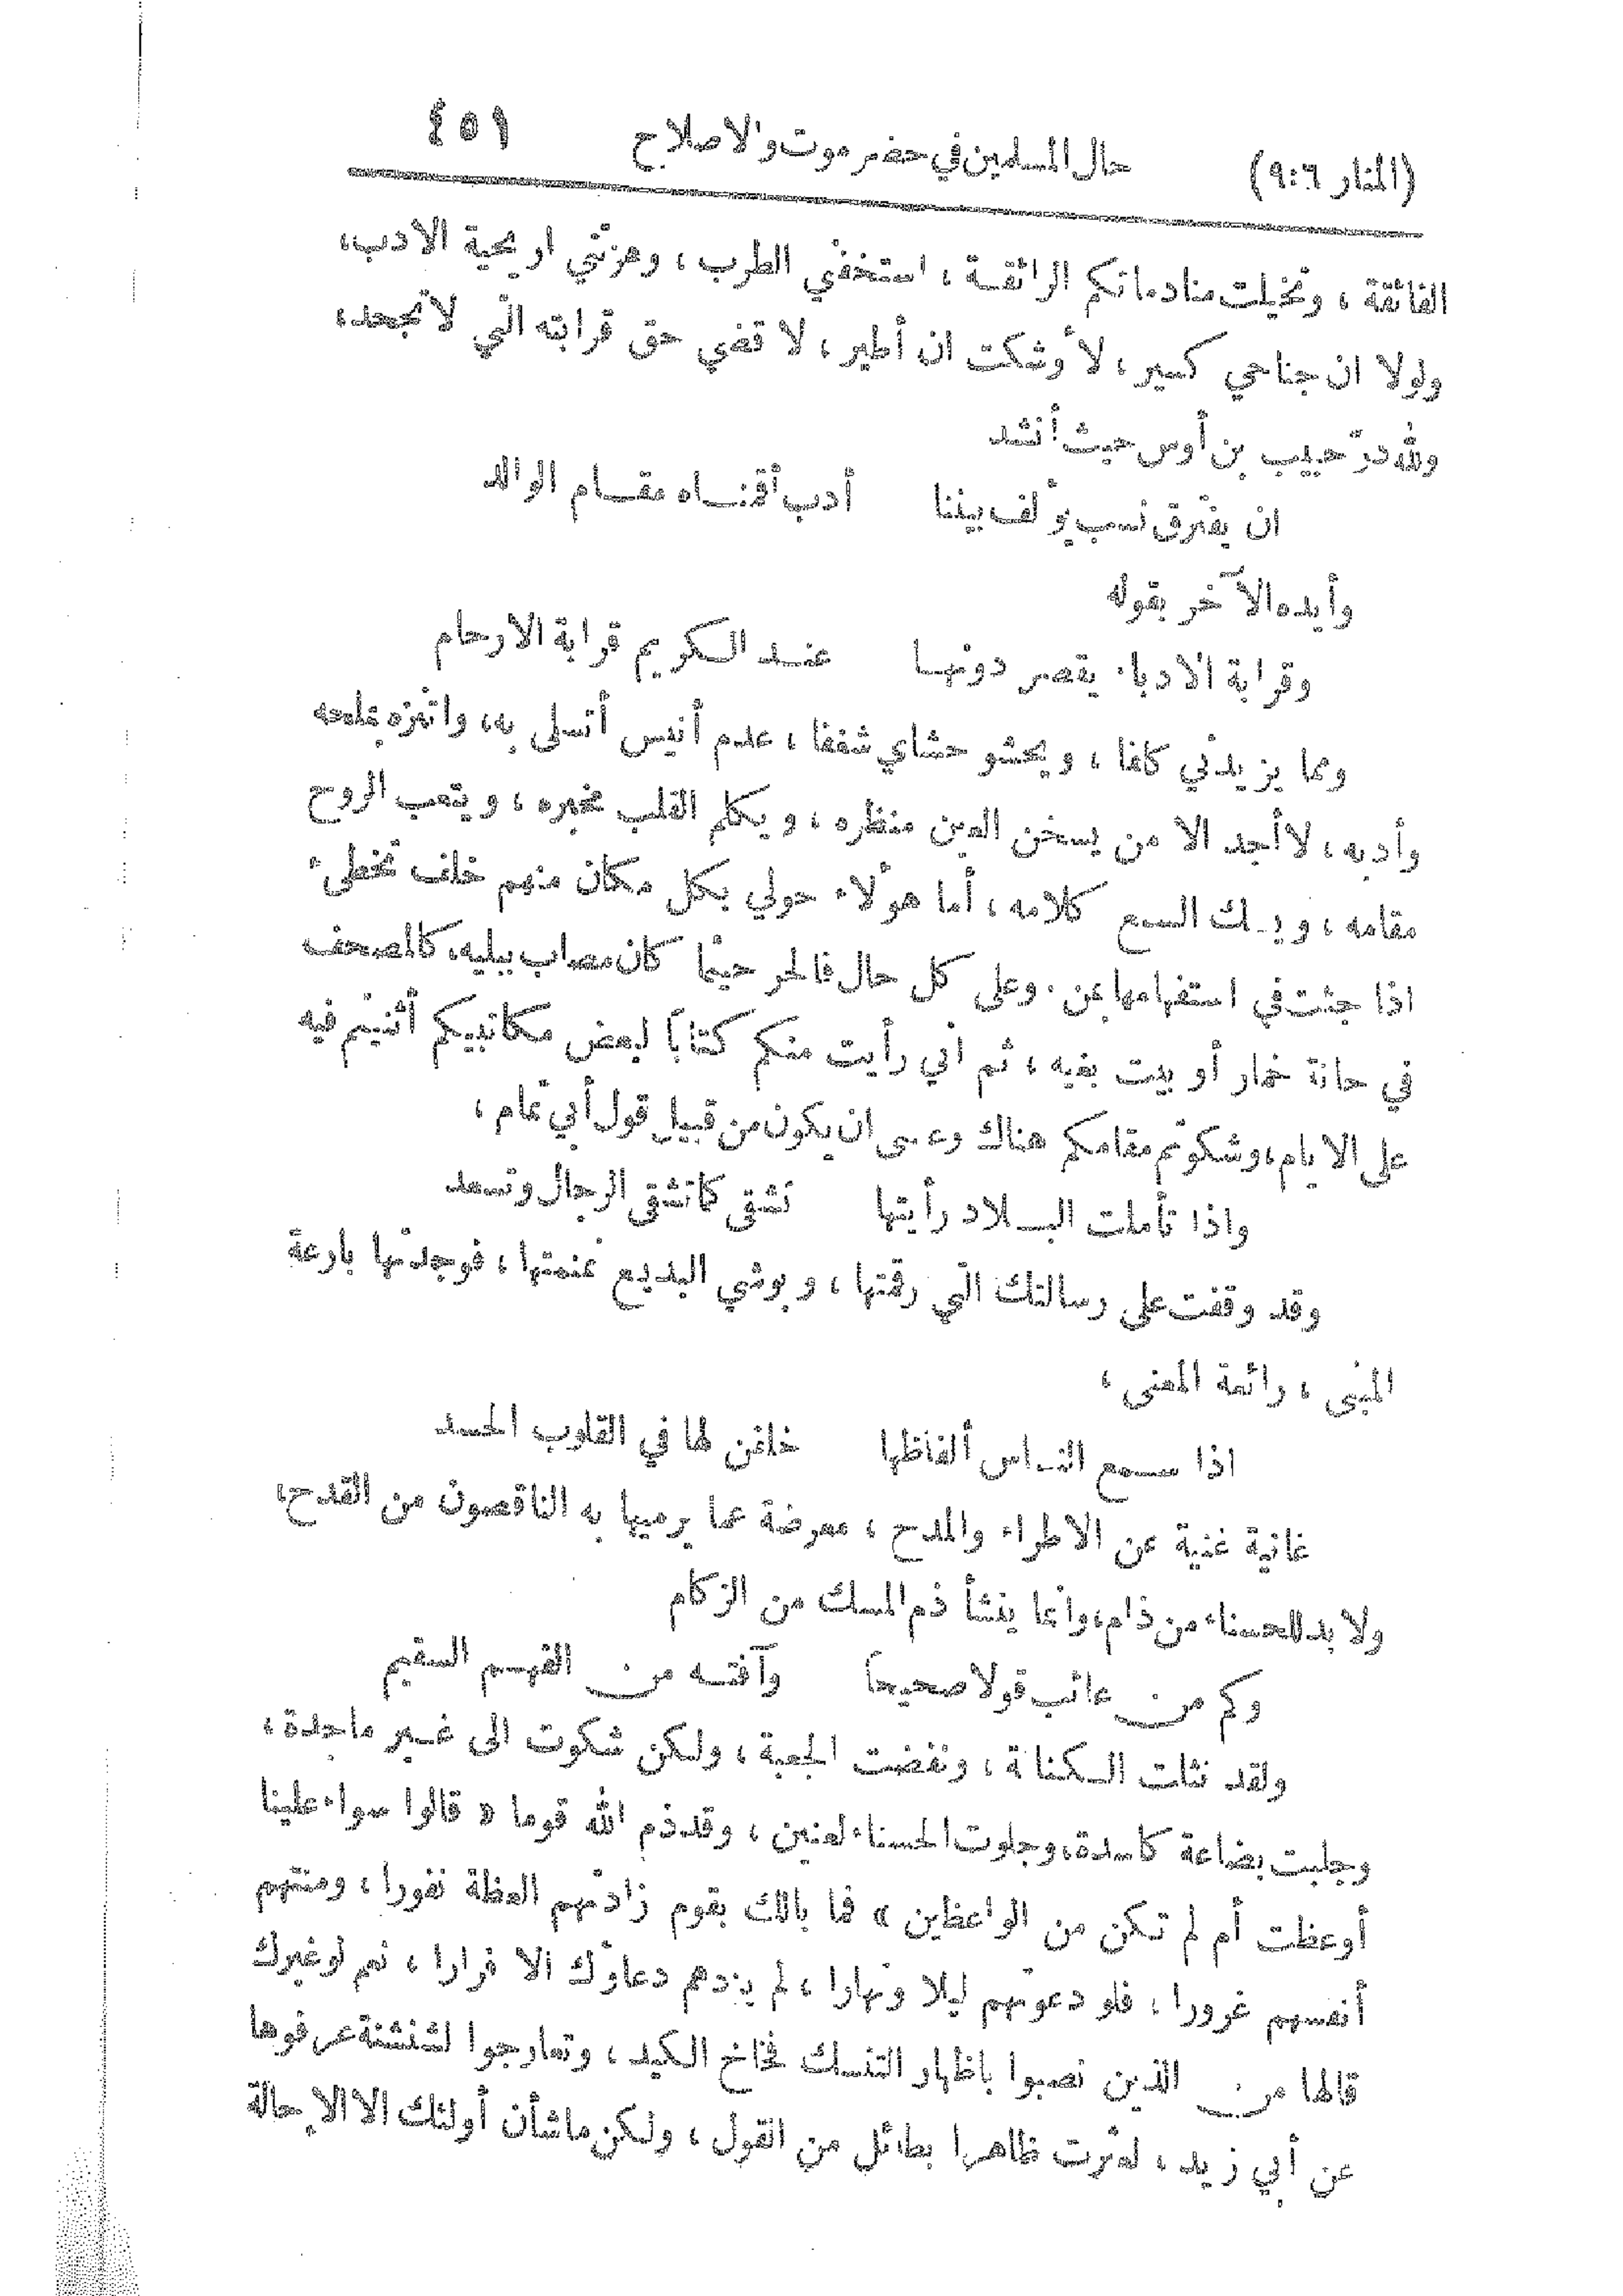 (المنار ٩:٦) حال المسلمين في حضرموت والاصلاح ٤٥١
الفائقة ، وتخيلت منادماتكم الرائقة ، استخفني الطرب ، وهزتني اريحية الادب،
ولولا ان جناحي كسير ، لأوشكت ان أطير ، لا قضي حق قرابته التي لا تجحد،
ولله درّ حبيب بن أوس حيث أنشد
ان يفترق نسب يؤلف بيننا أدب أقمناه مقام الوالد
وأيده الآخر بقوله
وقرابة الادباء يقصر دونها عند الكريم قرابة الارحام
ومما يزيدني كلفا ، ويحشو حشاي شغفا ، عدم أنيس أتسلى به، واتنزه بملحه
وأدبه ، لا أجد الا من يسخن العين منظره ، ويكلم القلب مخبره ، ويتعب الروح
مقامه ، ويسك السمع كلامه ، أما هؤلاء حولي بكل مكان منهم خلف تخطىء
اذا جئت في استفهامها بمن . وعلى كل حال فالحر حيثما كان مصاب ببليه، كالمصحف
في حانة خمار أو بيت بغيه ، ثم اني رأيت منكم كتاباً لبعض مكاتبيكم أثنيتم فيه
على الايام، وشكوتم مقامكم هناك وعسى ان يكون من قبيل قول أبي تمام ،
واذا تأملت البلاد رأيتها تشقى كما تشقى الرجال وتسعد
وقد وقفت على رسالتك التي رقمتها ، وبوشي البديع نمنمتها ، فوجدتها بارعة
المبنى ، رائعة المعنى ،
اذا سمع الناس ألفاظها خلقن لها في القلوب الحسد
غانية غنية عن الاطراء والمدح ، معرضة عما يرميها به الناقصون من القدح،
ولا بد للحسناء من ذام، وانما ينشأ ذم المسك من الزكام
وكم من عائب قولا صحيحاً وآفته من الفهم السقيم
ولقد نثلت الكنانة ، ونفضت الجعبة ، ولكن شكوت الى غير ماجدة ،
وجلبت بضاعة كاسدة، وجلوت الحسناء لعنين ، وقد ذم الله قوما « قالوا سواء علينا
أوعظت أم لم تكن من الواعظين » فما بالك بقوم زادتهم العظة نفورا ، ومنتهم
أنفسهم غرورا ، فلو دعوتهم ليلا ونهارا ، لم يزدهم دعاؤك الا فرارا ، نعم لو غيرك
قالها من الذين نصبوا باظهار التنسك فخاخ الكيد ، وتعارجوا لشنشنة عرفوها
عن أبي زيد ، لعثرت ظاهرا بطائل من القول ، ولكن ما شأن أولئك الا الإحالة